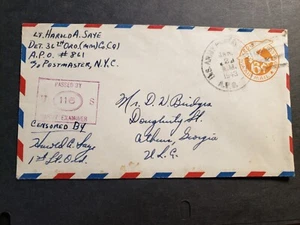 Lt. Harold A. Saye
Det. 36th Ord. (MM) Co (Q)
A.P.O. #861
℅ Postmaster, N.Y.C.
U.S. ARMY
A.P.O.
PASSED BY
116 S
ARMY EXAMINER
CENSORED BY
Harold A. Saye
1st Lt. Ord.
Mr. D. W. Bridges
Dougherty St.
Athens, Georgia
U.S.A.
6¢